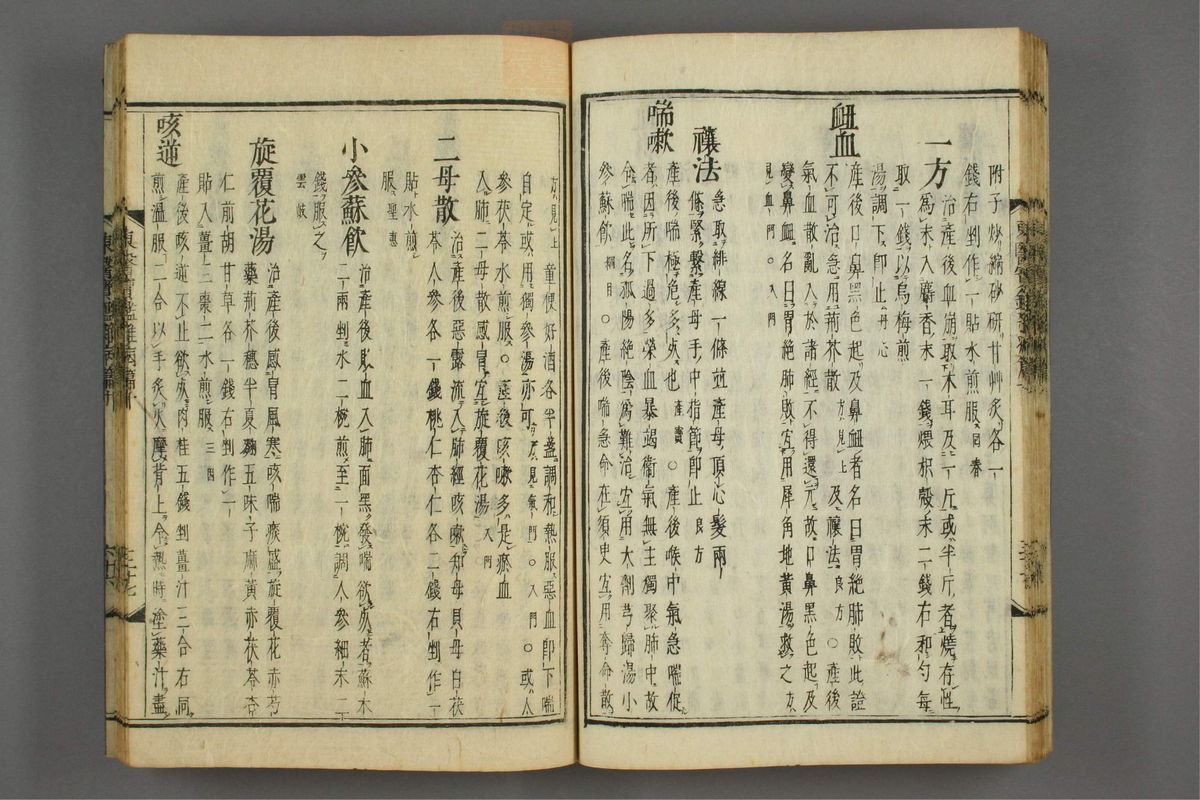 附子炒縮砂研甘艸炙各一
錢右剉作一貼水煎服回春
一方 治產後血崩取木耳及一斤或半斤者燒存性
爲末入麝香末一錢煨枳殼末二錢右和勻每
取一錢以烏梅煎
湯調下卽止丹心
衄血 產後口鼻黑色起及鼻衄者名曰胃絶肺敗此證
不可治急用荊芥散方見上及禳法良方○產後
氣血散亂入於諸經不得還元故口鼻黑色起及
變鼻衄名曰胃絶肺敗宜用犀角地黃湯救之方
見血門○入門
禳法 急取緋線一條並產母頂心髮兩
條緊繫產母手中指節卽止良方
喘嗽 產後喘極危多死也產寶○產後喉中氣急喘促
者因所下過多榮血暴竭衛氣無主獨聚肺中故
令喘此名孤陽絶陰爲難治宜用大劑芎歸湯小
參蘇飮綱目○產後喘急命在須臾宜用奪命散
方見上童便好酒各半盞調和熱服惡血卽下喘
自定或用獨參湯亦可方見氣門○入門○或人
參茯苓水煎服○產後咳嗽多是瘀血
入肺二母散感冒宜旋覆花湯入門
二母散 治產後惡露流入肺經咳嗽知母貝母白茯
苓人參各一錢桃仁杏仁各二錢右剉作一
貼水煎
服聖惠
小參蘇飮 治產後敗血入肺面黑發喘欲死者蘇木
二兩剉水二椀煎至一椀調人參細末二
錢服之
雲岐
旋覆花湯 治產後感冒風寒咳喘痰盛旋覆花赤芍
藥荊芥穗半夏麴五味子麻黃赤茯苓杏
仁前胡甘草各一錢右剉作一
貼入薑三棗二水煎服三因
咳逆 產後咳逆不止欲死肉桂五錢剉薑汁三合右同
煎溫服二合以手炙火摩背上令熱時塗藥汁盡